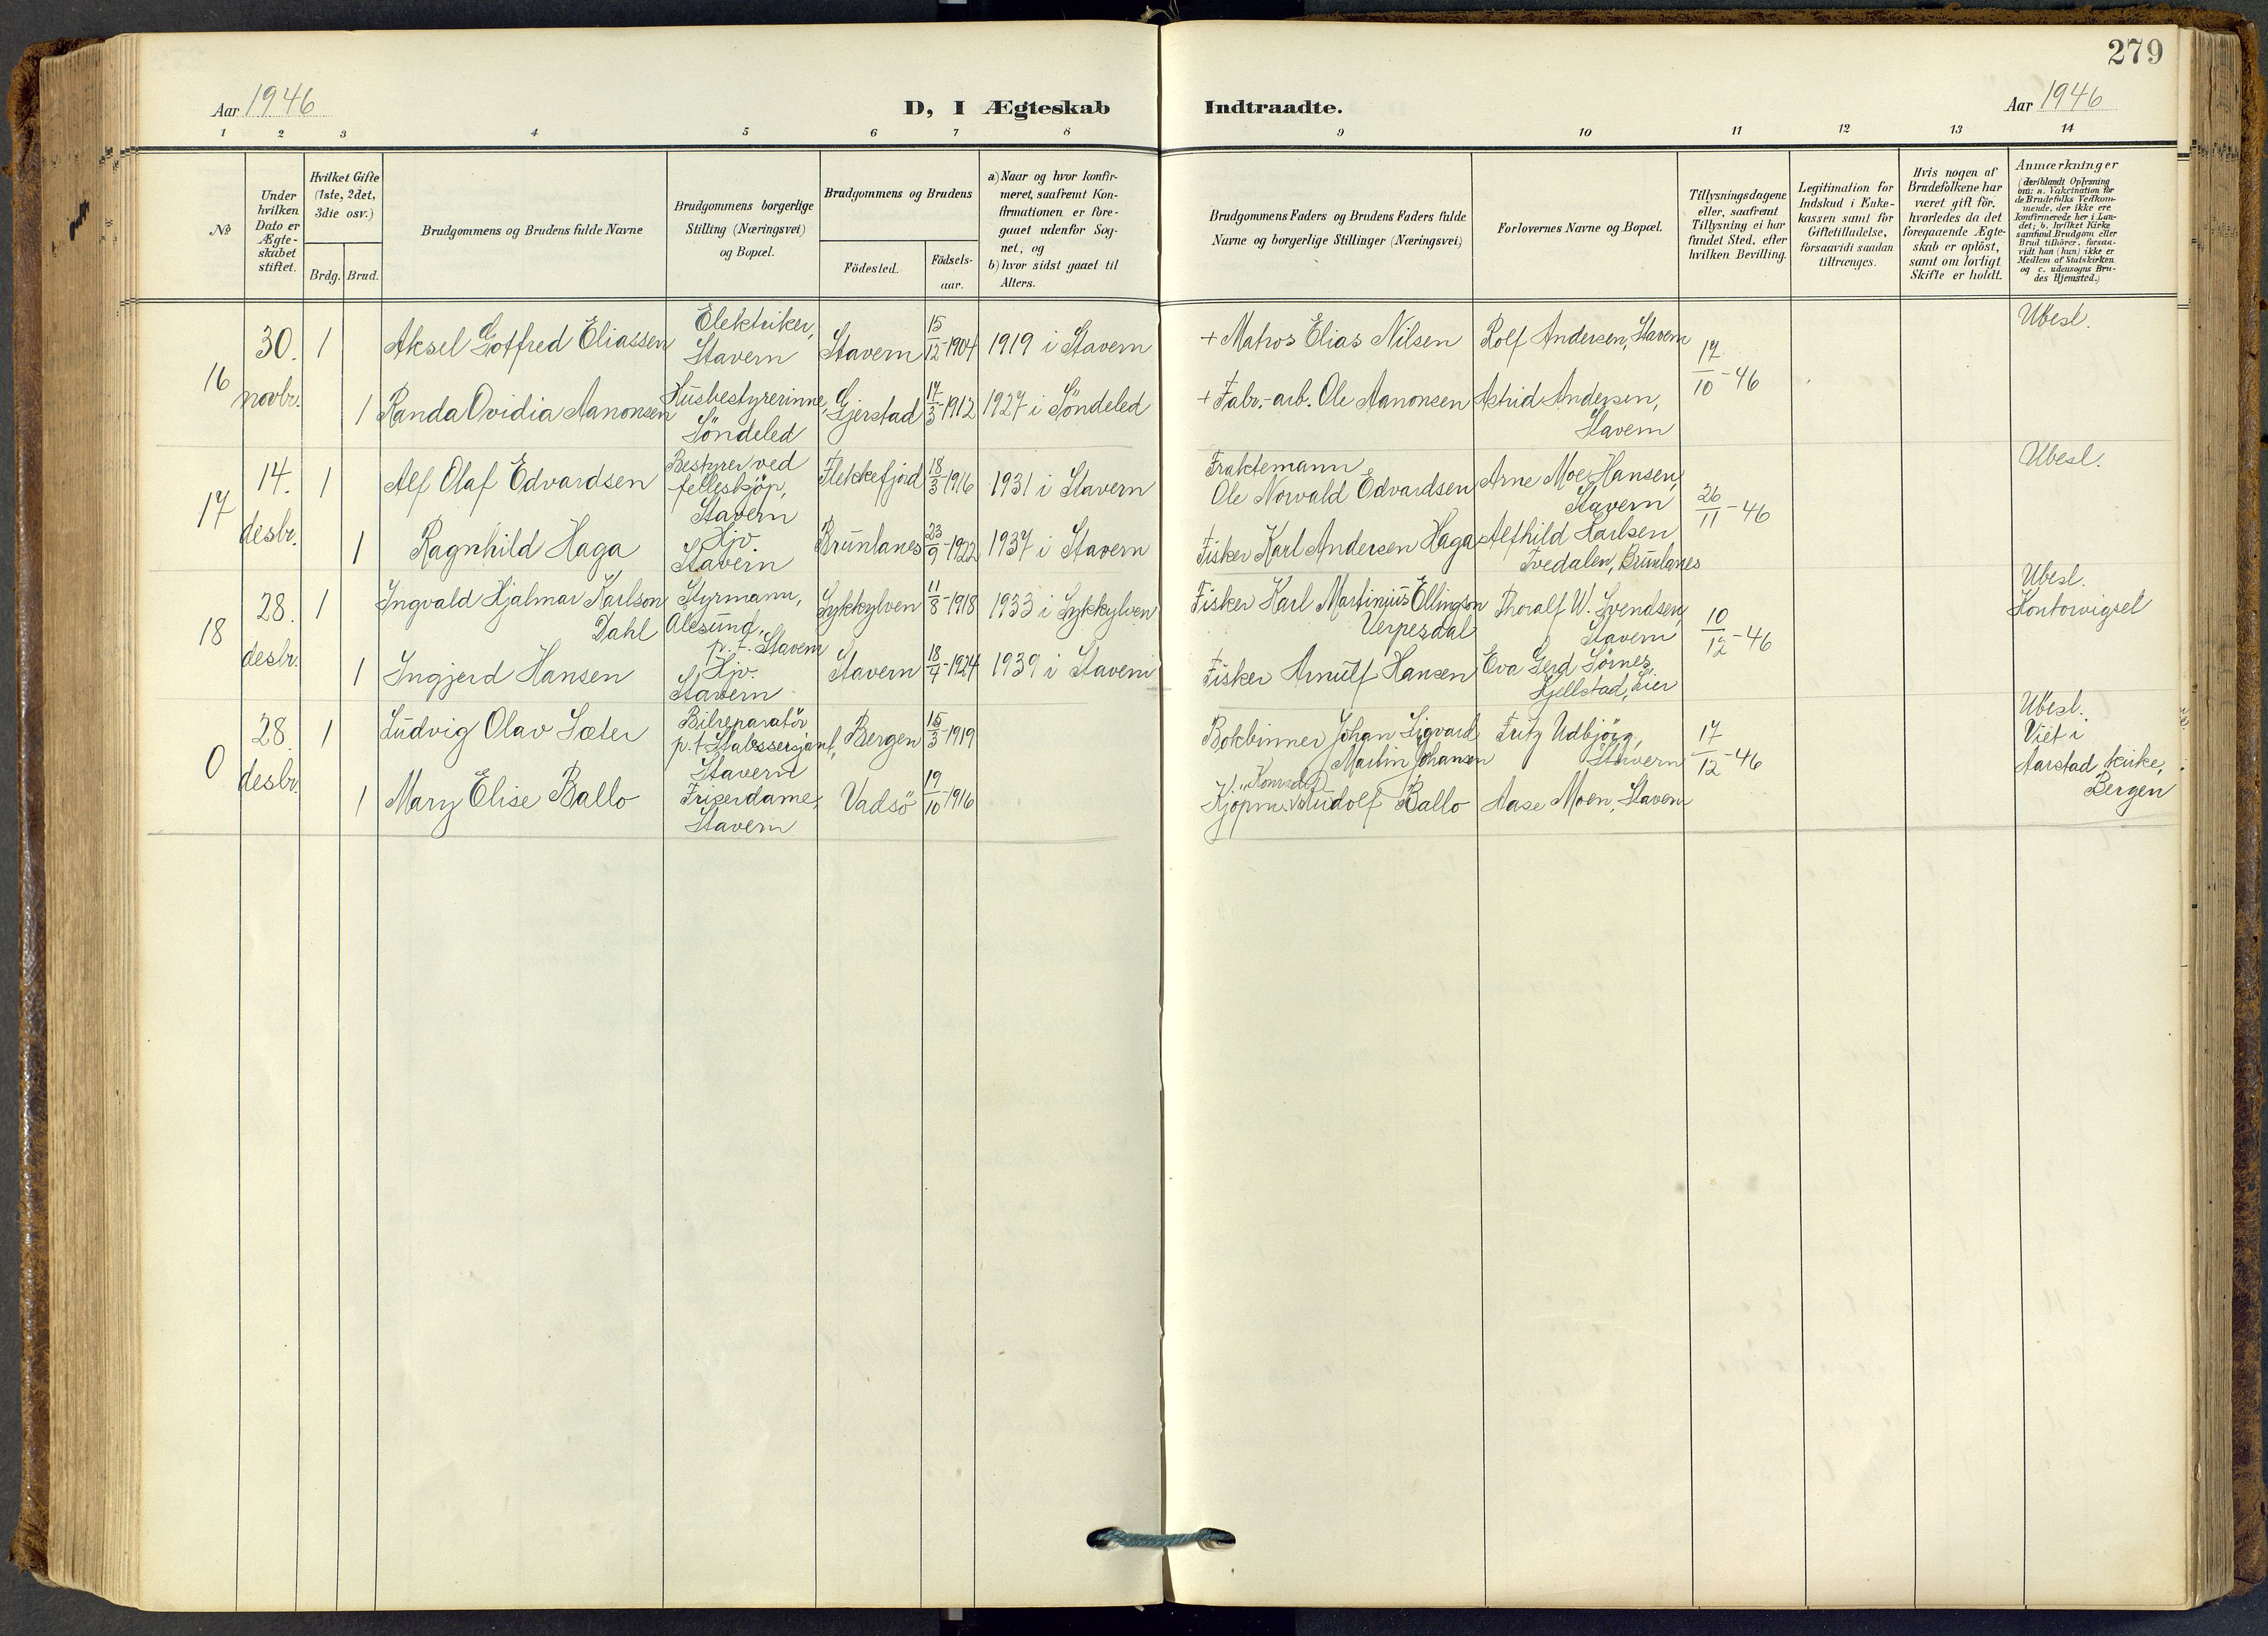 279
Aar 1946
D, I Ægteskab Indtraadte.
Aar 1946
1 2 3 4 5 6 7 8 9 10 11 12 13 14
№
Under hvilken Dato er Ægteskabet stiftet.
Hvilket Gifte (1ste, 2det, 3die osv.)
Brdg. Brud.
Brudgommens og Brudens fulde Navne
Brudgommens borgerlige Stilling (Næringsvei) og Bopæl.
Brudgommens og Brudens
Födested.
Födsels-aar.
a) Naar og hvor konfirmeret, saafremt Konfirmationen er foregaaet udenfor Sognet, og
b) hvor sidst gaaet til Alters.
Brudgommens Faders og Brudens Faders fulde Navne og borgerlige Stillinger (Næringsvei)
Forlovernes Navne og Bopæl.
Tillysningsdagene eller, saafremt Tillysning ei har fundet Sted, efter hvilken Bevilling.
Legitimation for Indskud i Enkekassen samt for Giftetilladelse, forsaavidt saadan tiltrænges.
Hvis nogen af Brudefolkene har været gift för, hvorledes da det foregaaende Ægteskab er oplöst, samt om lovligt Skifte er holdt.
Anmærkninger
(deriblandt Oplysning om: a. Vakcination for de Brudefolks Vedkommende, der ikke ere konfirmerede her i Landet; b. hvilket Kirkesamfund Brudgom eller Brud tilhörer, forsaavidt han (hun) ikke er Medlem af Statskirken og c. udensogns Brudes Hjemsted.)
16
30. novbr.
1
Aksel Gotfred Eliassen
Elektriker, Stavern
Stavern
15/12-1904
1919 i Stavern
+ Matros Elias Nilsen
Rolf Andersen, Stavern
17/10-46
Ubesl.
1
Randa Ovidia Aanonsen
Husbestyrerinne, Söndeled
Gjerstad
17/3-1912
1927 i Söndeled
+ Fabr.-arb. Ole Aanonsen
Astrid Andersen, Stavern
17
14. desbr.
1
Alf Olaf Edvardsen
Bestyrer ved felleskjöp, Stavern
Flekkefjord
18/3-1916
1931 i Stavern
Fraktemann
Ole Norvald Edvardsen
Arne Moe Hansen, Stavern
26/11-46
Ubesl.
1
Ragnhild Haga
Hjv. Stavern
Brunlanes
23/9-1922
1937 i Stavern
Fisker Karl Andersen Haga
Alfhild Karlsen
Tvedalen, Brunlanes
18
28. desbr.
1
Ingvald Hjalmar Karlson Dahl
Styrmann, Ålesund, p.t. Stavern
Sykkylven
11/8-1918
1933 i Sykkylven
Fisker Karl Martinius Ellingson Verpesdal
Thoralf W. Svendsen, Stavern
10/12-46
Ubesl.
Kontorvigsel
1
Ingjerd Hansen
Hjv. Stavern
Stavern
18/4-1924
1939 i Stavern
Fisker Arnulf Hansen
Eva Gerd Sörnes, Gjellstad, Lier
0
28. desbr.
1
Ludvig Olav Sæter
Bilreparatör
p.t. Stabssersjant, Stavern
Bergen
15/3-1919
Bokbinner Johan Sigvard Martin Johansen
Fritz Udbjörg, Stavern
17/12-46
Ubesl.
Viet i Aarstad kirke, Bergen
1
Mary Elise Ballo
Friserdame, Stavern
Vadsö
19/10-1916
Kjöpm. Rudolf Ballo
Aase Moen, Stavern